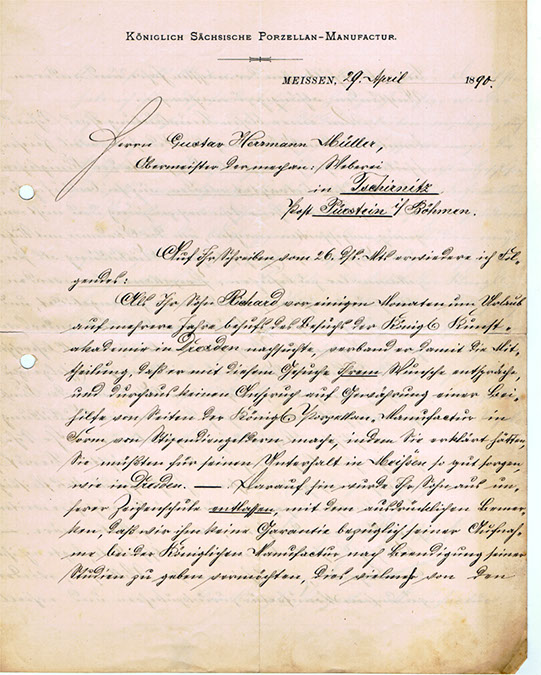 Königlich Sächsische Porzellan-Manufactur.
Meissen, 29. April 1890.
Herrn Gustav Herrmann Müller,
Obermeister der mechan: Weberei
in Tschirnitz
Post Pürstein i/ Böhmen.
Auf Ihr Schreiben vom 26. ds. Mts erwiedere ich Fol-
gendes:
Als Ihr Sohn Richard vor einigen Monaten um Urlaub
auf mehrere Jahre behufs des Besuchs der Königl. Kunst-
akademie in Dresden nachsuchte, verband er damit die Mit-
theilung, daß er mit diesem Gesuche Ihrem Wunsche entspräche,
und durchaus keinen Anspruch auf Gewährung einer Bei-
hilfe von Seiten der Königl. Porzellan-Manufactur in
Form von Stipendiengeldern mache, indem Sie erklärt hätten,
Sie müßten für seinen Unterhalt in Meißen so gut sorgen
wie in Dresden. — Darauf hin wurde Ihr Sohn aus un-
serer Zeichenschule entlassen, mit dem ausdrücklichen Bemer-
ken, daß wir ihm keine Garantie bezüglich seiner Aufnah-
me bei der Königlichen Manufactur nach Beendigung seiner
Studien zu geben vermöchten, dies vielmehr von den